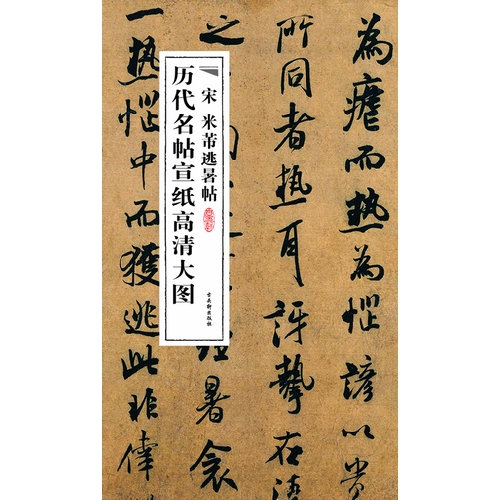 為瘧而熱為惱諺以
所同者熱耳訝摯在清
之
暑
一熱惱中而獲逃此非倖
宋 米芾逃暑帖
历代名帖宣纸高清大图